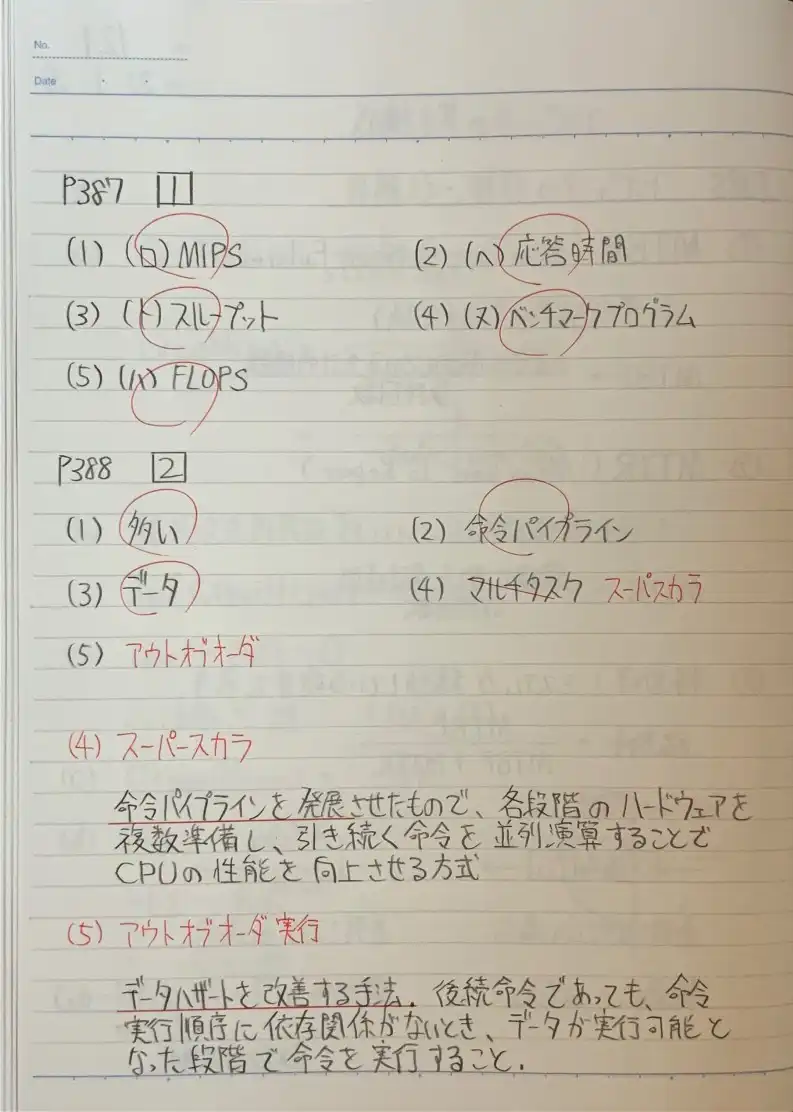 No.
Date
P387 1
(1) (ロ) MIPS (2) (ヘ) 応答時間
(3) (ト) スループット (4) (ヌ) ベンチマークプログラム
(5) (ハ) FLOPS
P388 2
(1) 多い (2) 命令パイプライン
(3) データ (4) マルチタスク スーパスカラ
(5) アウトオブオーダ
(4) スーパースカラ
命令パイプラインを発展させたもので、各段階のハードウェアを
複数準備し、引き続く命令を並列演算することで
CPUの性能を向上させる方式
(5) アウトオブオーダ実行
データハザートを改善する手法. 後続命令であっても、命令
実行順序に依存関係がないとき、データが実行可能と
なった段階で命令を実行すること.